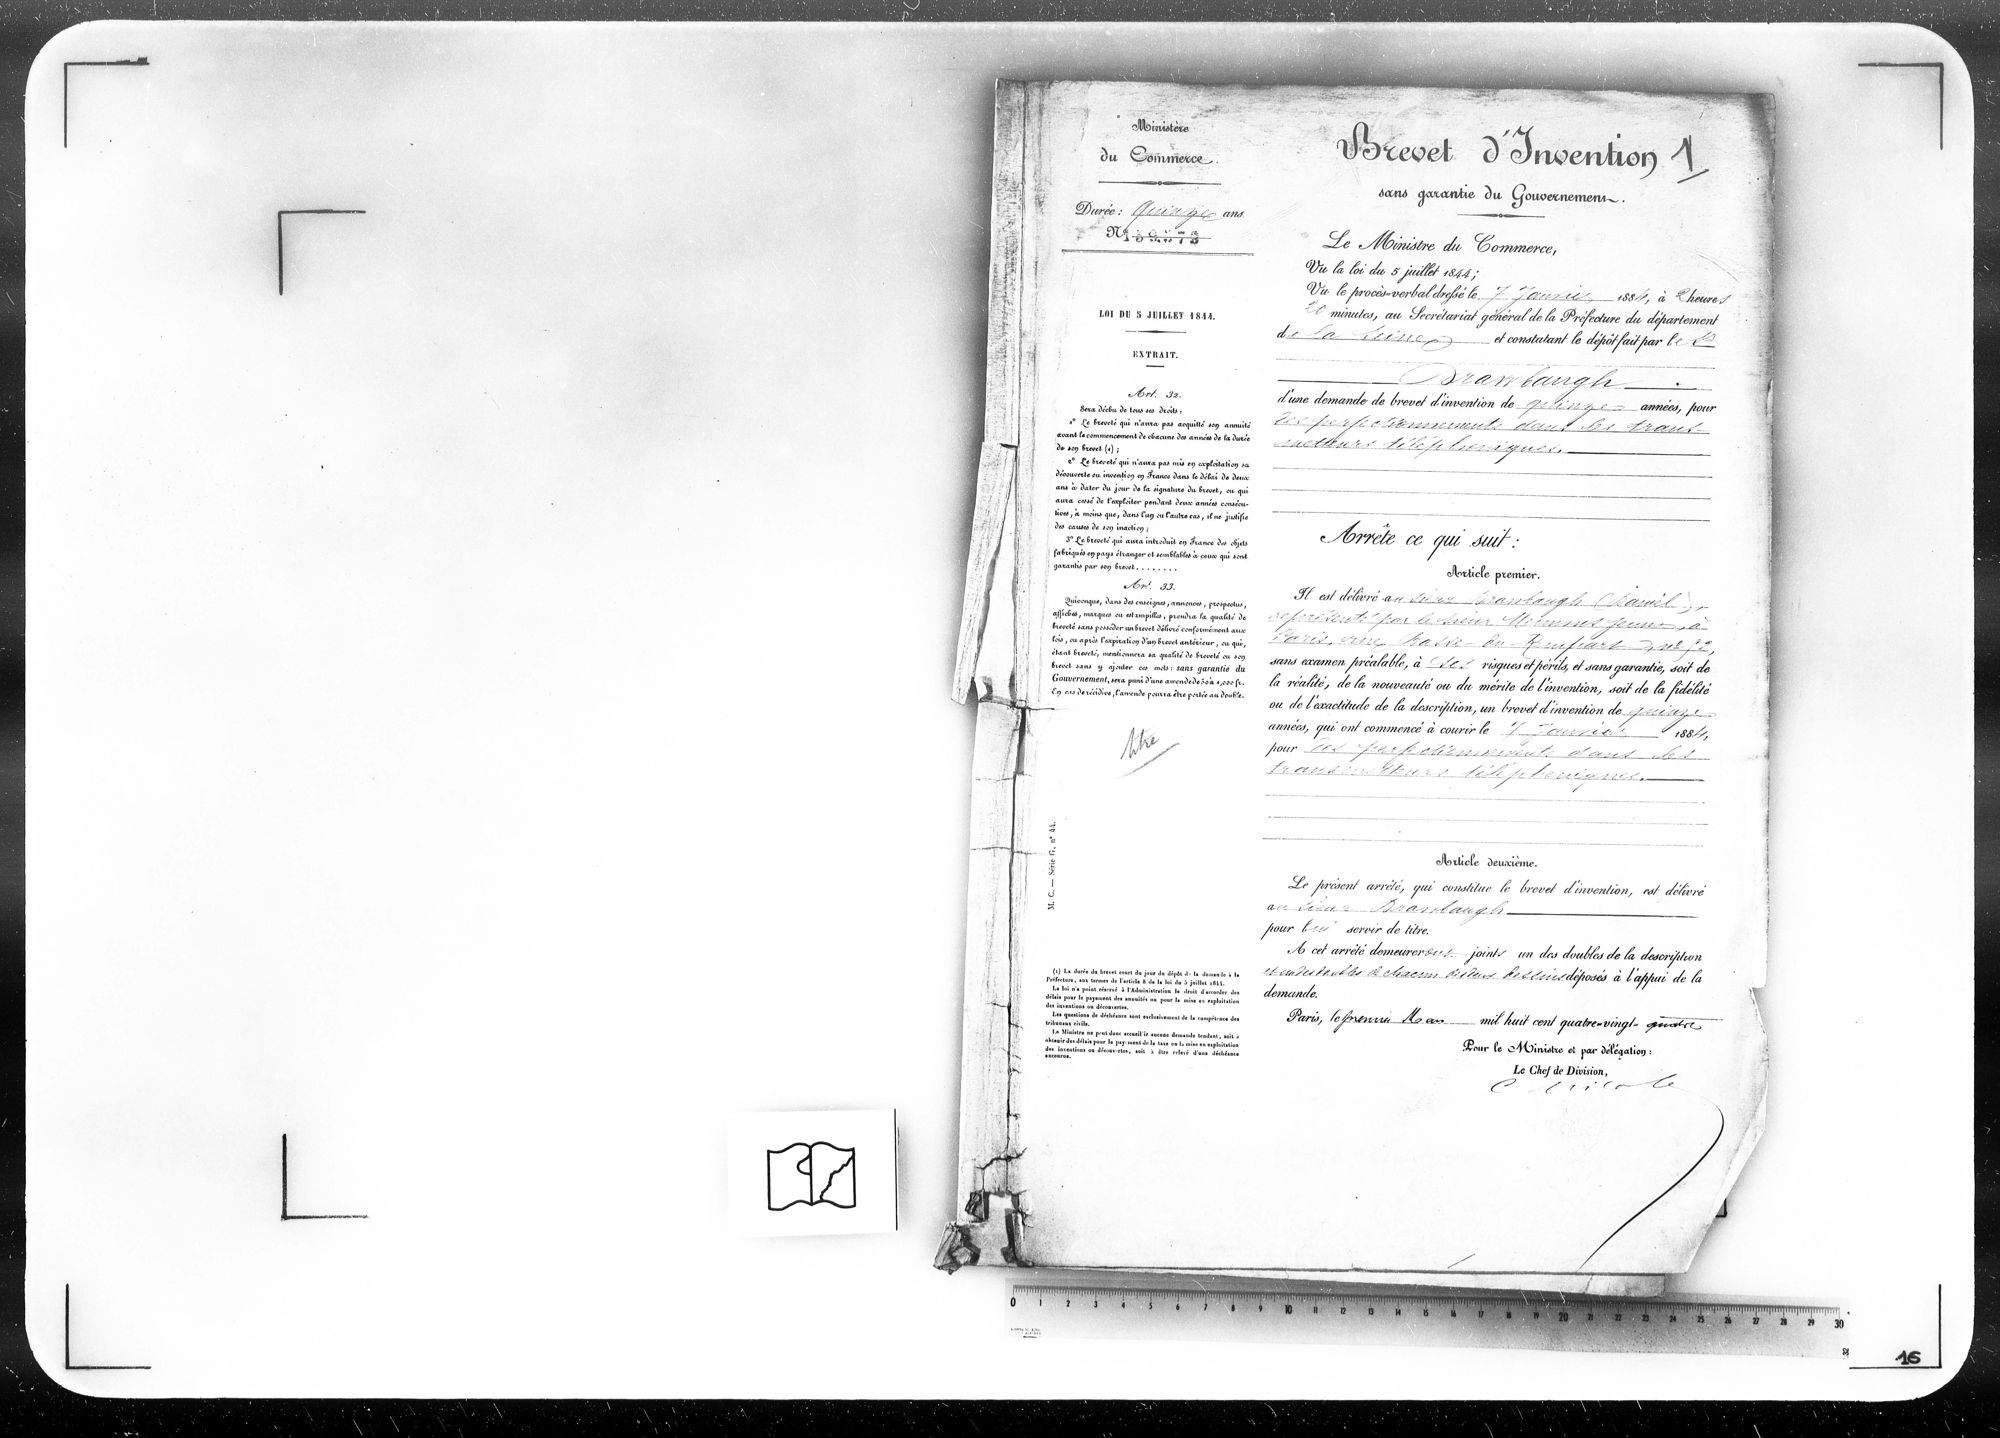 Ministère
du Commerce.
Durée : Quinze ans
N°
LOI DU 5 JUILLET 1844.
EXTRAIT.
Art. 32.
Sera déchu de tous ses droits :
1° Le breveté qui n'aura pas acquitté son annuité
avant le commencement de chacune des années de la durée
de son brevet (1) ;
2° Le breveté qui n'aura pas mis en exploitation sa
découverte ou invention en France dans le délai de deux
ans à dater du jour de la signature du brevet, ou qui
aura cessé de l'exploiter pendant deux années consécu-
tives, à moins que, dans l'un ou l'autre cas, il ne justifie
des causes de son inaction ;
3° Le breveté qui aura introduit en France des objets
fabriqués en pays étranger et semblables à ceux qui sont
garantis par son brevet........
Art. 33.
Quiconque, dans des enseignes, annonces, prospectus,
affiches, marques ou estampilles, prendra la qualité de
breveté sans posséder un brevet délivré conformément aux
lois, ou après l'expiration d'un brevet antérieur, ou qui,
étant breveté, mentionnera sa qualité de breveté ou son
brevet sans y ajouter ces mots : sans garantie du
Gouvernement, sera puni d'une amende de 50 à 1,000 fr.
En cas de récidive, l'amende pourra être portée au double.
titre
M. C. — Série G, n° 44.
(1) La durée du brevet court du jour du dépôt de la demande à la
Préfecture, aux termes de l'article 8 de la loi du 5 juillet 1844.
La loi n'a point réservé à l'Administration le droit d'accorder des
délais pour le payement des annuités ou pour la mise en exploitation
des inventions ou découvertes.
Les questions de déchéance sont exclusivement de la compétence des
tribunaux civils.
Le Ministre ne peut donc accueillir aucune demande tendant, soit à
obtenir des délais pour le payement de la taxe ou la mise en exploitation
des inventions ou découvertes, soit à être relevé d'une déchéance
encourue.
Brevet d'Invention 1
sans garantie du Gouvernement.
Le Ministre du Commerce,
Vu la loi du 5 juillet 1844 ;
Vu le procès-verbal dressé le 7 Janvier 1884, à 2 heures
20 minutes, au Secrétariat général de la Préfecture du département
de la Seine et constatant le dépôt fait par le Sr
Drawbaugh
d'une demande de brevet d'invention de quinze années, pour
des perfectionnements dans les trans-
metteurs téléphoniques.
Arrête ce qui suit :
Article premier.
Il est délivré au sieur Drawbaugh (Daniel),
représenté par le sieur jeune, à
Paris, rue Basse-du-Rempart,
sans examen préalable, à ses risques et périls, et sans garantie, soit de
la réalité, de la nouveauté ou du mérite de l'invention, soit de la fidélité
ou de l'exactitude de la description, un brevet d'invention de quinze
années, qui ont commencé à courir le 7 Janvier 1884,
pour des perfectionnements dans les
transmetteurs téléphoniques.
Article deuxième.
Le présent arrêté, qui constitue le brevet d'invention, est délivré
au sieur Drawbaugh
pour lui servir de titre.
A cet arrêté demeureront joints un des doubles de la description
et un des doubles de chacun des deux dessins déposés à l'appui de la
demande.
Paris, le premier Mars mil huit cent quatre-vingt-quatre
Pour le Ministre et par délégation :
Le Chef de Division,
0 1 2 3 4 5 6 7 8 9 10 11 12 13 14 15 16 17 18 19 20 21 22 23 24 25 26 27 28 29 30
16